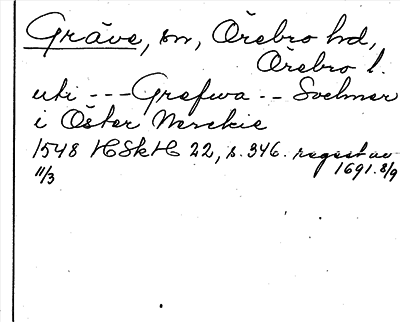 Gräve, sn, Örebro hd,
Örebro l.
uti --- Grefwa -- Sochner
i Öster Nerckie
1548 HSkH 22, s. 346. regest av
11/3 1691. 8/9